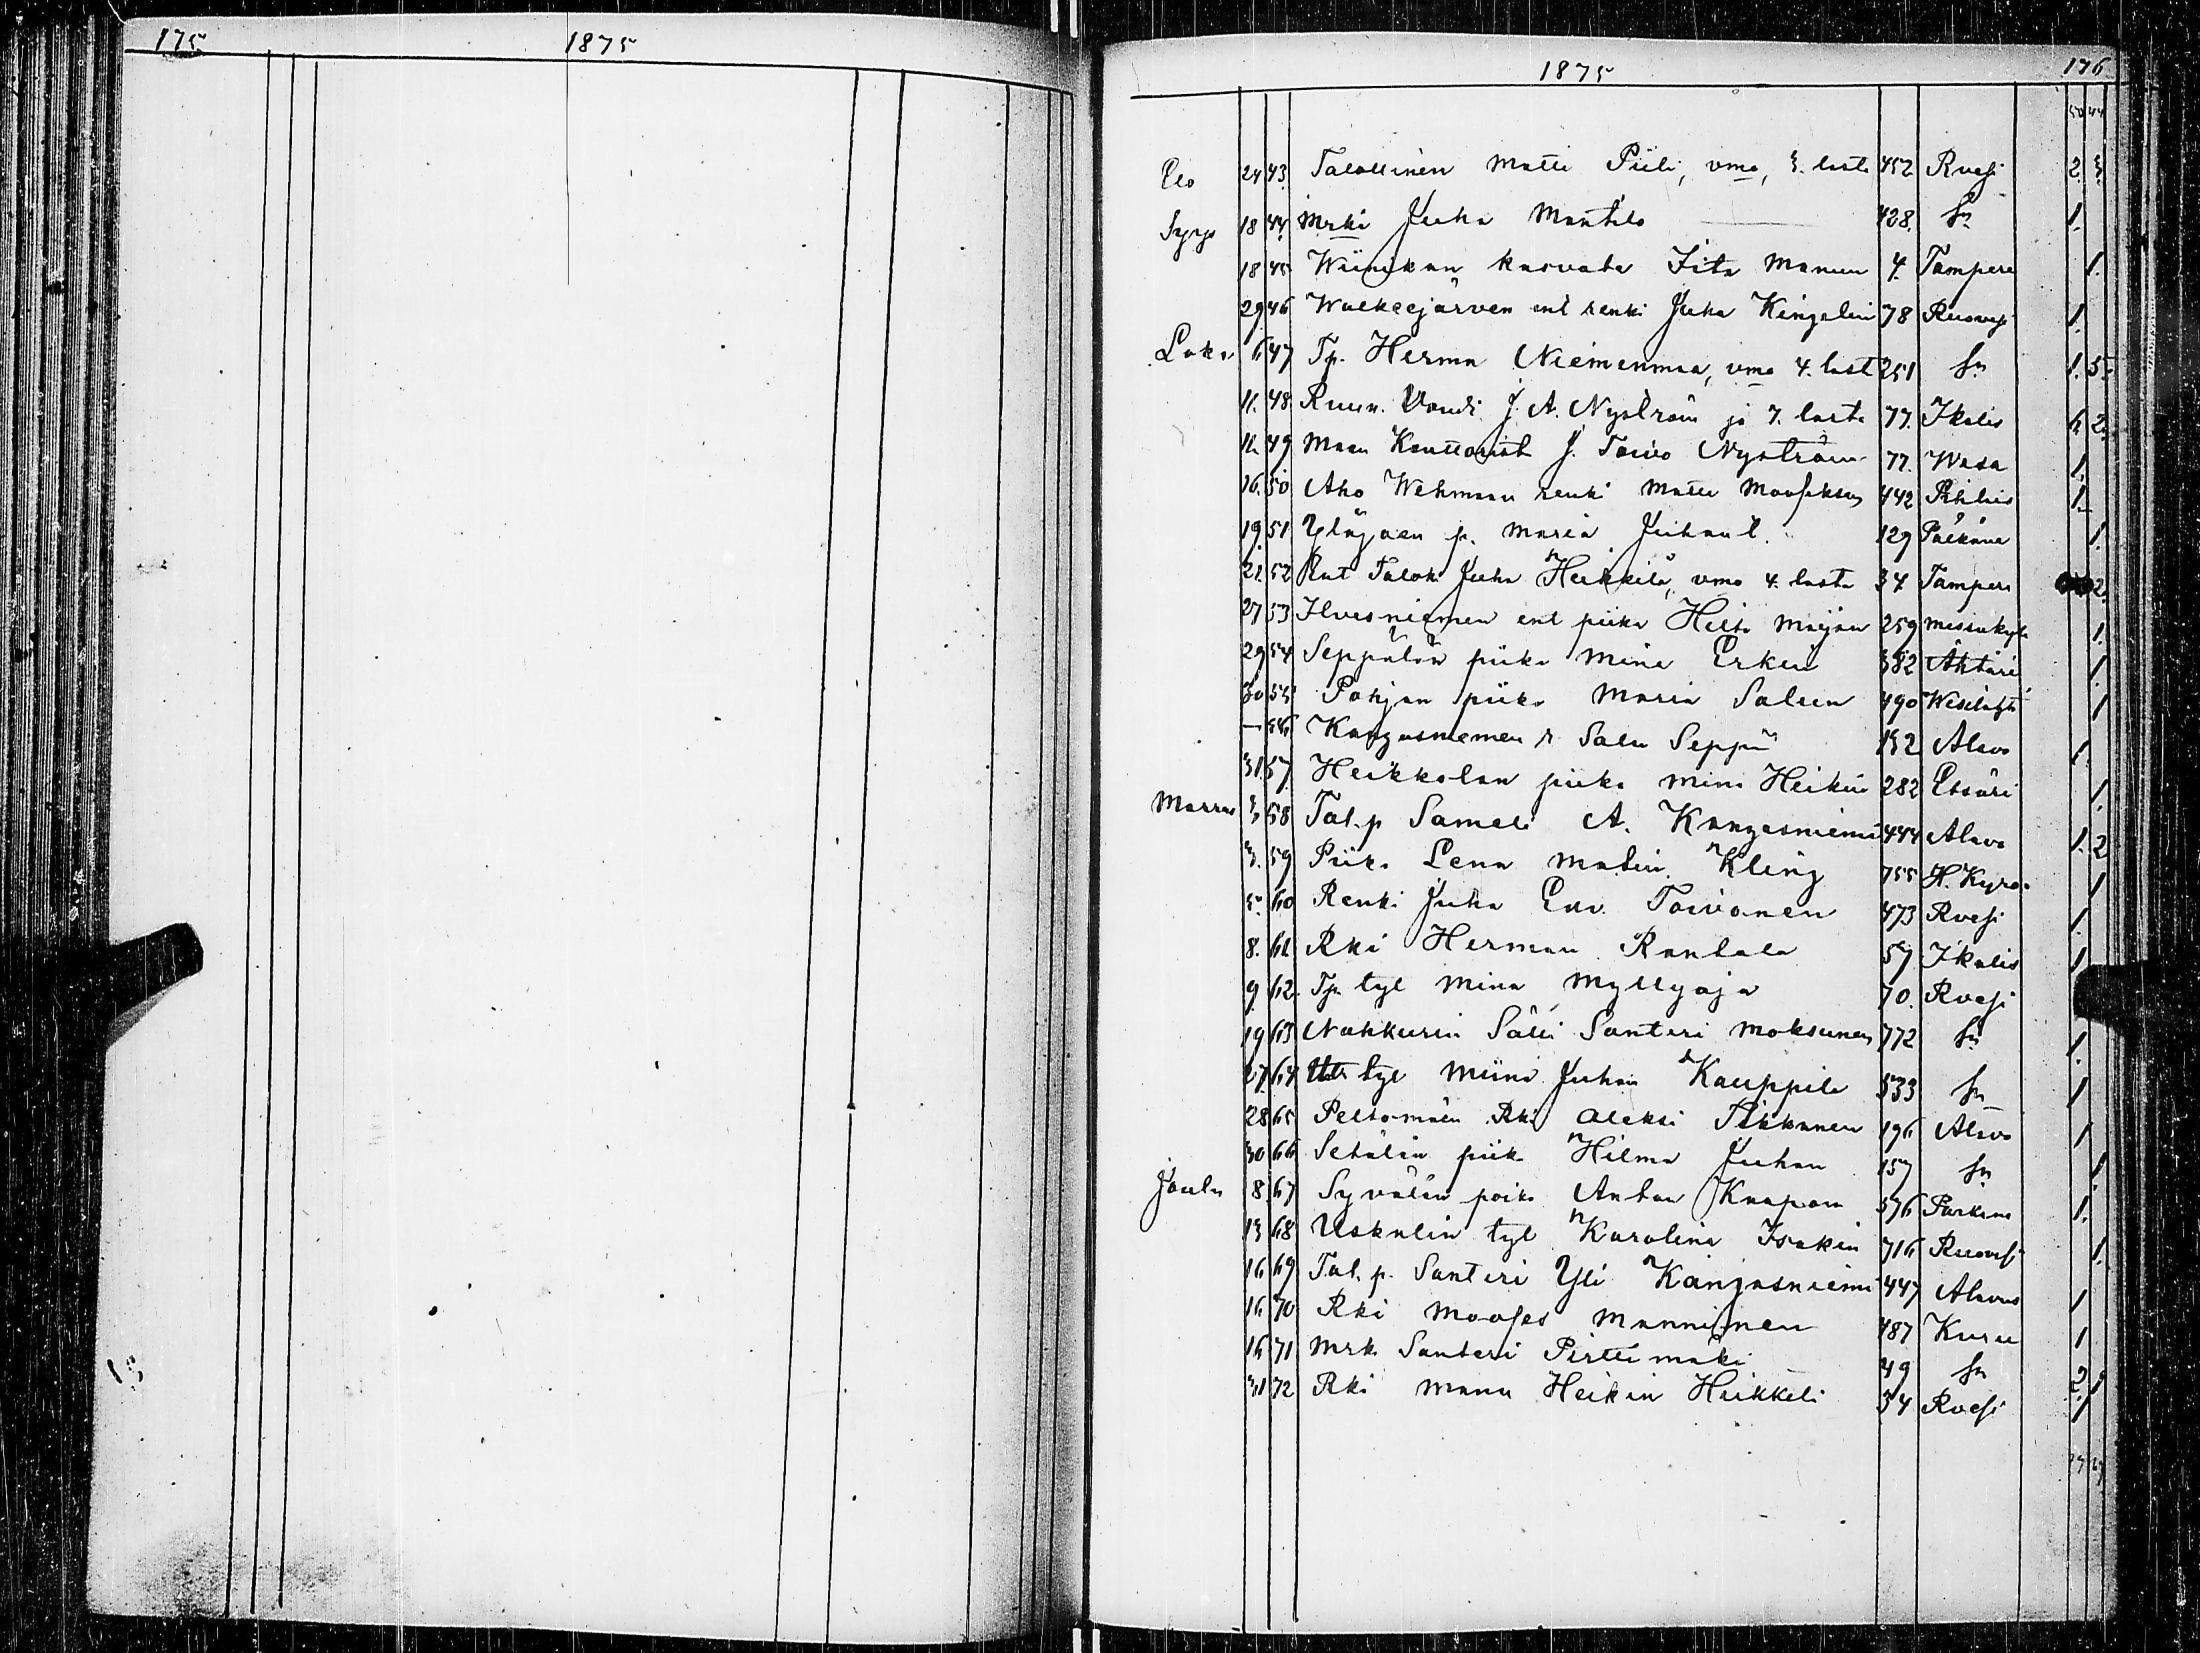 175 1875
1875 176
50 44
Elo 24 43. Talollinen Matti Piili, vmo, 3. lasta 452 Rvesi 2. 3.
Syys 18 44. Mrki Juha Mantila 428. sn 1.
18 45 Wiinikan kasvatti Fita Manun 4. Tampere 1.
29 46 Walkeejärven ent renki Juha Kingelin 78 Ruovesi 1.
Loka 6 47 Tp. Herman Niemenmaa, vmo 4. last 251 sn 1. 5.
11. 48. Ruun. Voudi J. A. Nyström ja 7. lasta 77. Ikalis 6. 2.
11. 49 Maan Konttorist J. Toivo Nyström 77. Wasa 1.
16. 50 Aho Wehmaan renki Matti Mooseksen 442 1.
19 51 Yläjoen p. Maria Juhant. 129 Pälkäne 1.
21. 52 Rat Talok Juha Heikkilä, vmo 4. lasta 34 Tampere 2.
27 53 Ilvesniemen ent piika Heita Maijan 259 Messukylä 1.
29 54 Seppälän piika Mina Erkin 382 Ähtäri 1.
30 55 Pohjan piika Maria Salun 490 Wesilahti 1
— 56 Kangasniemen r Salu Seppä 152 Alavo 1.
31. 57. Heikkolan piika Mina Heikin 282 Etsäri 1.
Marras 3. 58 Tal. p Sameli A. Kangasniemi 444 Alavo 1. 2
3. 59 Piika Lena Matin Kling 755 H. Kyrö 1
5. 60 Renki Juha Edv. Toivonen 473 Rvesi 1.
8. 61 Rki Herman Rantala 57 Ikalis 1
9. 62. Tp. tyt Mina Myllyoja 70. Rvesi
19 63 Nahkurin Sälli Santeri Moksunen 772 sn 1.
27 64 tyt Miina Juhan Kauppila 533 sn 1
28 65 Peltomäen Rki Aleksi Pikkanen 196 Alavo 1
30 66 Setälän piika Hilma Juhan 157 sn 1.
Joulu 8. 67 Syvälän poika Anton Knapon 576 Parkano 1.
13 68 Uskalin tyt Karolina Isakin 716 Ruovesi 1.
16 69 Tal. p. Santeri Yli Kangasniemi 447 Alavus 1
16 70 Rki Mooses Manninen 487 Kuru 1
16 71 Mrk Santeri Pirttimäki 49 sn 2. 1
31 72 Rki Manu Heikin Heikkili 34 Rvesi 1